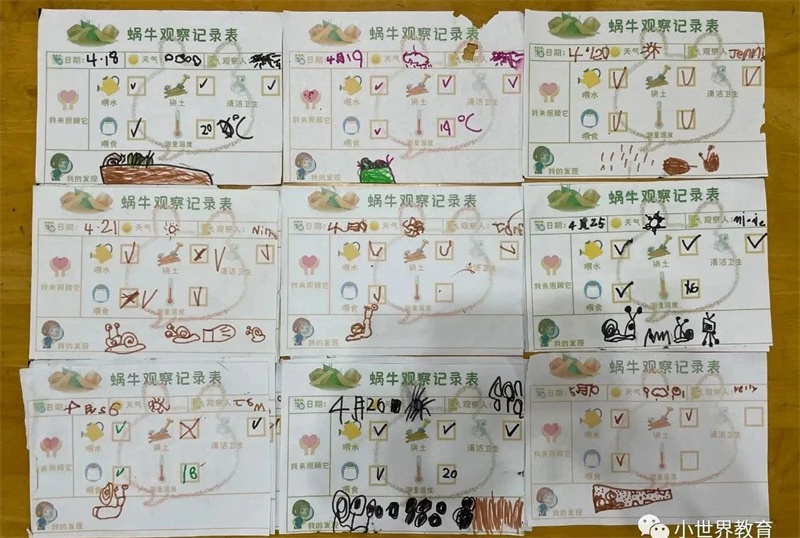 蜗牛观察记录表
日期: 4.18 天气 观察人:
喂水 换土 清洁卫生
我来照顾它
喂食 测量温度 20 ℃
我的发现
蜗牛观察记录表
日期: 4月19 天气 观察人:
喂水 换土 清洁卫生
我来照顾它
喂食 测量温度 19℃
我的发现
蜗牛观察记录表
日期: 天气 观察人: Jenni
喂水 换土 清洁卫生
我来照顾它
喂食 测量温度
我的发现
蜗牛观察记录表
日期: 4.21 天气 观察人: Nin
喂水 换土 清洁卫生
我来照顾它
喂食 测量温度
我的发现
蜗牛观察记录表
日期: 天气 观察人:
喂水 换土 清洁卫生
我来照顾它
喂食 测量温度
我的发现
蜗牛观察记录表
日期: 4月25 天气 观察人:
喂水 换土 清洁卫生
我来照顾它
喂食 测量温度
我的发现
蜗牛观察记录表
日期: 天气 观察人:
喂水 换土 清洁卫生
我来照顾它
喂食 测量温度 18
我的发现
蜗牛观察记录表
日期: 4月26 天气 观察人:
喂水 换土 清洁卫生
我来照顾它
喂食 测量温度 20
我的发现
蜗牛观察记录表
日期: 天气 观察人:
喂水 换土 清洁卫生
我来照顾它
喂食 测量温度
我的发现
小世界教育